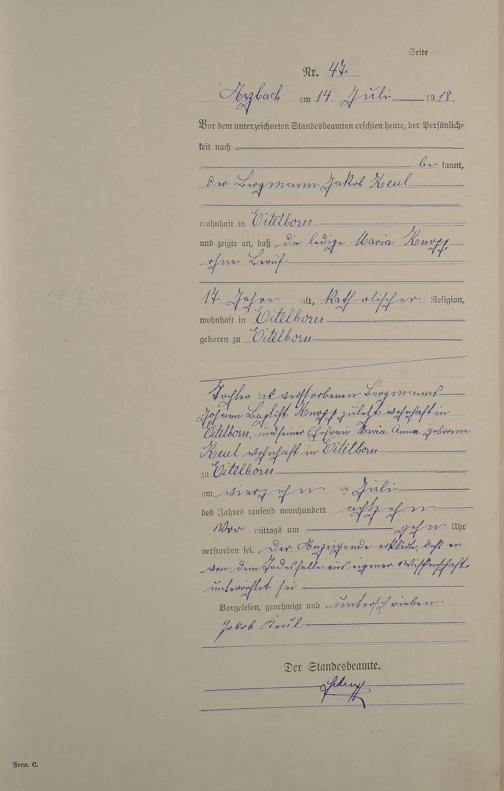 Seite
Nr. 47.
Arzbach am 14. Juli 1918.
Vor dem unterzeichneten Standesbeamten erschien heute, der Persönlich-
keit nach
bekannt,
der Bergmann Jakob Keul
wohnhaft in Eitelborn
und zeigte an, daß die ledige Maria Knopp
ohne Beruf.
17 Jahre alt, katholischer Religion,
wohnhaft in Eitelborn
geboren zu Eitelborn
Tochter des verstorbenen Bergmanns
Johann Baptist Knopp zuletzt wohnhaft in
Eitelborn, und seiner Ehefrau Maria Anna geborene
Keul wohnhaft in Eitelborn
zu Eitelborn
am vierzehn Juli
des Jahres tausend neunhundert achtzehn
Vor mittags um zehn Uhr
verstorben sei. Der Anzeigende erklärte, daß er
von dem Todesfalle aus eigener Wissenschaft
unterrichtet sei
Vorgelesen, genehmigt und unterschrieben.
Jakob Keul
Der Standesbeamte.
Form. C.